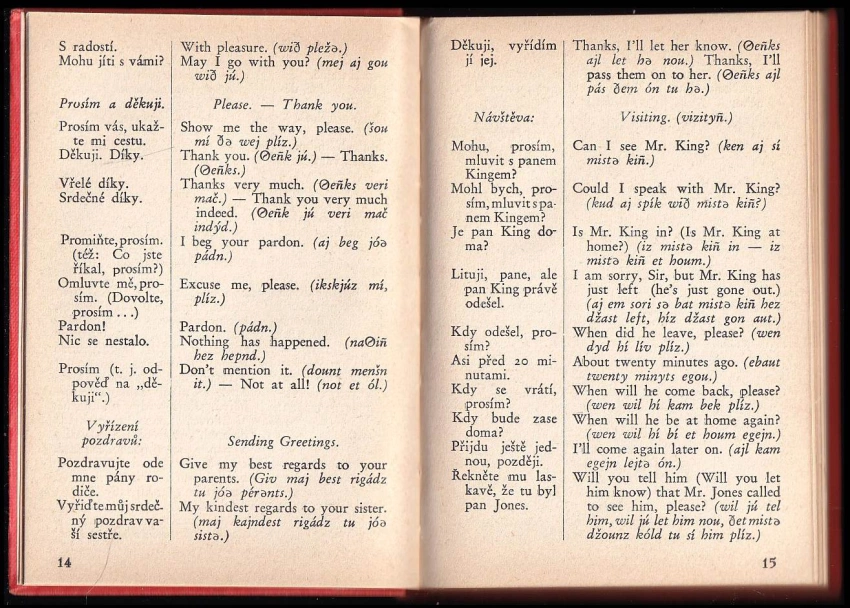 S radostí.
With pleasure. (wið pležə.)
Mohu jíti s vámi?
May I go with you? (mej aj gou
wið jú.)
Prosím a děkuji.
Please. — Thank you.
Prosím vás, ukaž-
te mi cestu.
Show me the way, please. (šou
mí ðə wej plíz.)
Děkuji. Díky.
Thank you. (Θeňk jú.) — Thanks.
(Θeňks.)
Vřelé díky.
Thanks very much. (Θeňks veri
mač.) — Thank you very much
Srdečné díky.
indeed. (Θeňk jú veri mač
indýd.)
Promiňte, prosím.
(též: Co jste
říkal, prosím?)
I beg your pardon. (aj beg jóə
pádn.)
Omluvte mě, pro-
sím. (Dovolte,
prosím . . .)
Excuse me, please. (ikskjúz mí,
plíz.)
Pardon!
Pardon. (pádn.)
Nic se nestalo.
Nothing has happened. (naΘiň
hez hepnd.)
Prosím (t. j. od-
pověď na „dě-
kuji“.)
Don't mention it. (dount menšn
it.) — Not at all! (not et ól.)
Vyřízení
pozdravů:
Sending Greetings.
Pozdravujte ode
mne pány ro-
diče.
Give my best regards to your
parents. (Giv maj best rigádz
tu jóə pérənts.)
Vyřiďte můj srdeč-
ný pozdrav va-
ší sestře.
My kindest regards to your sister.
(maj kajndest rigádz tu jóə
sistə.)
14
Děkuji, vyřídím
jí jej.
Thanks, I'll let her know. (Θeňks
ajl let hə nou.) Thanks, I'll
pass them on to her. (Θeňks ajl
pás ðem ón tu hə.)
Návštěva:
Visiting. (vizityň.)
Mohu, prosím,
mluvit s panem
Kingem?
Can I see Mr. King? (ken aj sí
mistə kiň.)
Mohl bych, pro-
sím, mluvit s pa-
nem Kingem?
Could I speak with Mr. King?
(kud aj spík wið mistə kiň?)
Je pan King do-
ma?
Is Mr. King in? (Is Mr. King at
home?) (iz mistə kiň in — iz
mistə kiň et houm.)
Lituji, pane, ale
pan King právě
odešel.
I am sorry, Sir, but Mr. King has
just left (he's just gone out.)
(aj em sori sə bat mistə kiň hez
džast left, híz džast gon aut.)
Kdy odešel, pro-
sím?
When did he leave, please? (wen
dyd hí lív plíz.)
Asi před 20 mi-
nutami.
About twenty minutes ago. (ebaut
twenty minyts egou.)
Kdy se vrátí,
prosím?
When will he come back, please?
(wen wil hí kam bek plíz.)
Kdy bude zase
doma?
When will he be at home again?
(wen wil hí bí et houm egejn.)
Přijdu ještě jed-
nou, později.
I'll come again later on. (ajl kam
egejn lejtə ón.)
Řekněte mu las-
kavě, že tu byl
pan Jones.
Will you tell him (Will you let
him know) that Mr. Jones called
to see him, please? (wil jú tel
him, wil jú let him nou, ðet mistə
džounz kóld tu sí him plíz.)
15